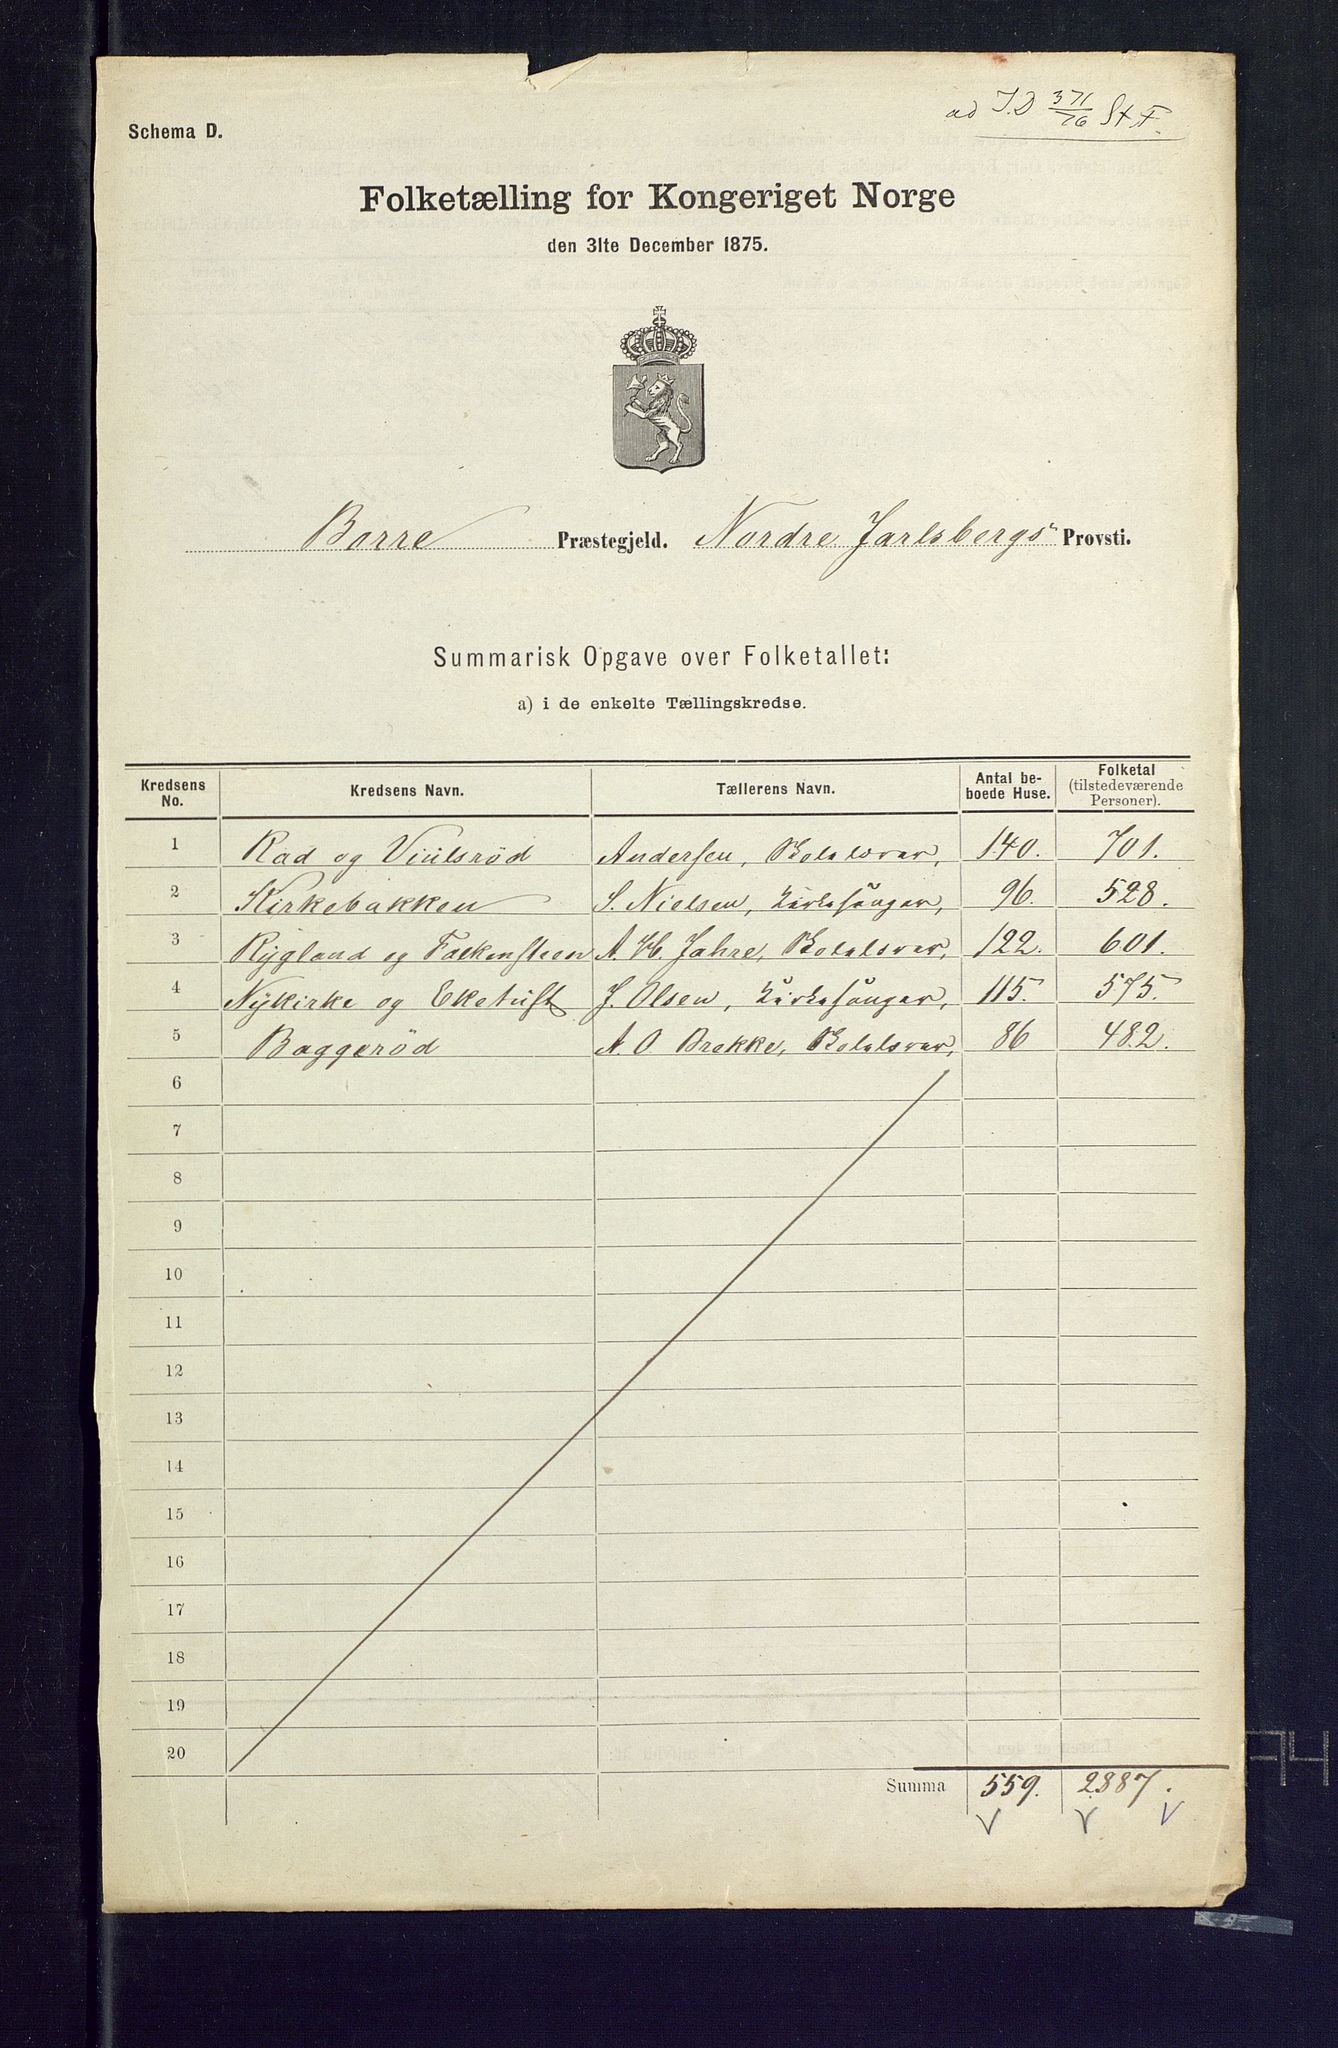 ad J.D 371/76 St. F.
Schema D.
Folketælling for Kongeriget Norge
den 31te December 1875.
Borre Præstegjeld. Nordre Jarlsbergs Provsti.
Summarisk Opgave over Folketallet:
a) i de enkelte Tællingskredse.
Kredsens No. Kredsens Navn. Tællerens Navn. Antal beboede Huse. Folketal (tilstedeværende Personer).
1 Rad og Viulsröd Andersen, 140. 701.
2 Kirkebakken S. Nielsen, Kirkesanger, 96. 528.
3 Rygland og Falkensteen A. H. Jahre, 122. 601.
4 Nykirke og Eketuft J. Olsen, Kirkesanger, 115. 575.
5 Baggeröd A. O. Brekke, 86 482.
6
7
8
9
10
11
12
13
14
15
16
17
18
19
20
Summa 559. 2887.